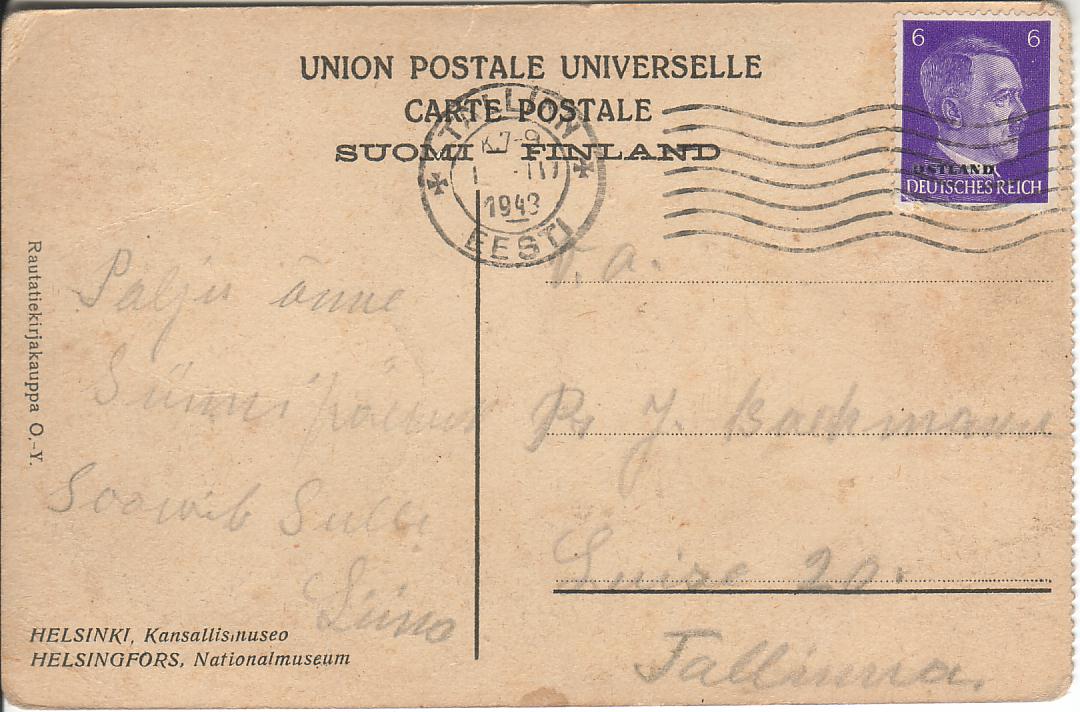 UNION POSTALE UNIVERSELLE
CARTE POSTALE
SUOMI FINLAND
TALLINN
7-9
III
1943
EESTI
6 6
OSTLAND
DEUTSCHES REICH
Rautatiekirjakauppa O.-Y.
Palju õnne
Sünnipäevaks
Soowib Sulle
HELSINKI, Kansallismuseo
HELSINGFORS, Nationalmuseum
Pr J. Backmann
20.
Tallinna.